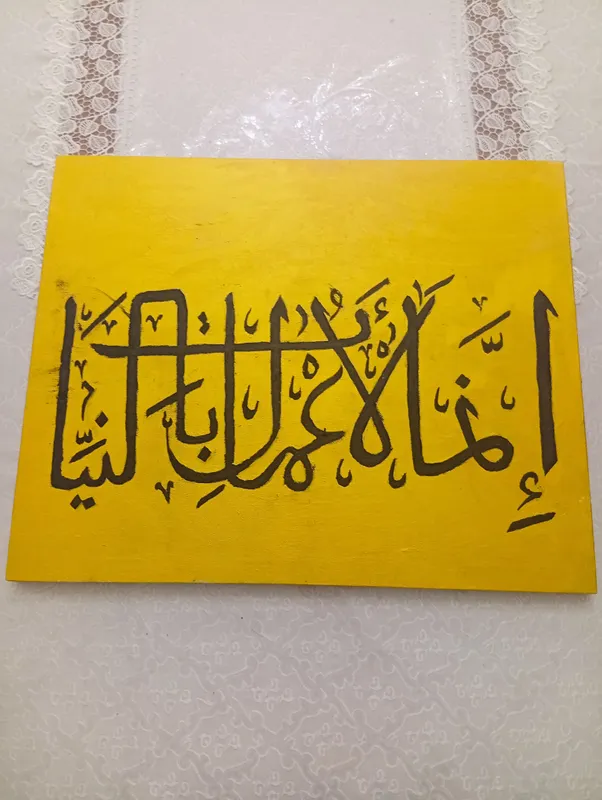 إِنَّمَا الْأَعْمَالُ بِالنِّيَّاتِ